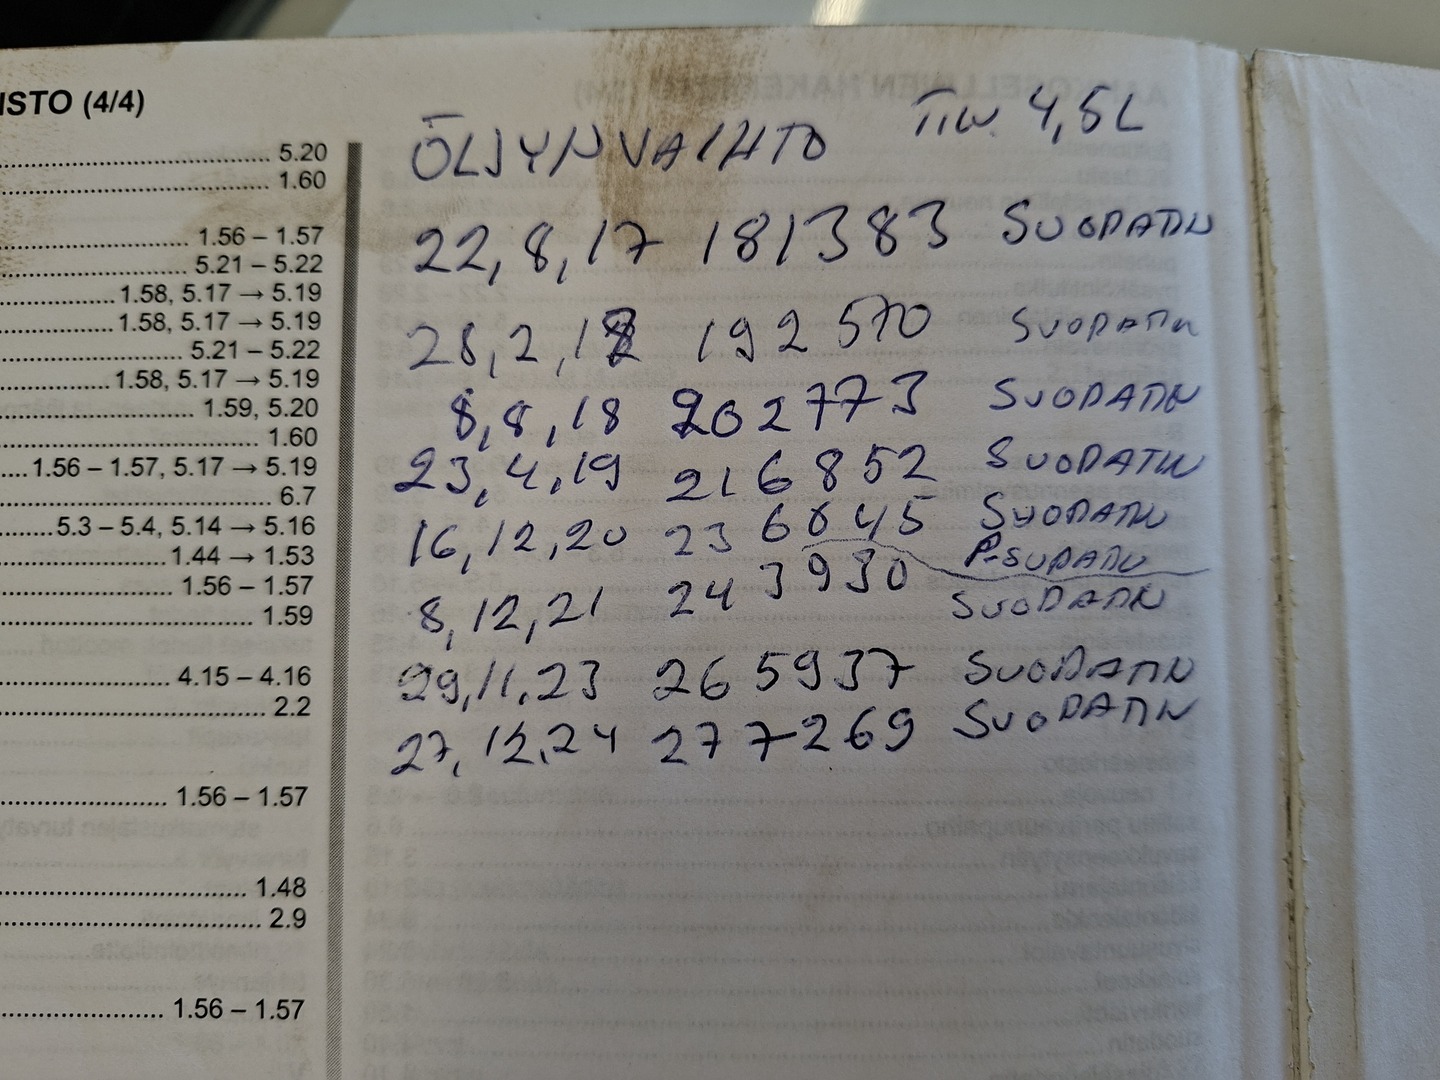 ISTO (4/4)
5.20
1.60
1.56 – 1.57
5.21 – 5.22
1.58, 5.17 → 5.19
1.58, 5.17 → 5.19
5.21 – 5.22
1.58, 5.17 → 5.19
1.59, 5.20
1.60
1.56 – 1.57, 5.17 → 5.19
6.7
5.3 – 5.4, 5.14 → 5.16
1.44 → 1.53
1.56 – 1.57
1.59
4.15 – 4.16
2.2
1.56 – 1.57
1.48
2.9
1.56 – 1.57
ÖLJYNVAIHTO TIW. 4,5L
22,8,17 181383 SUODATIN
28,2,18 192570 SUODATIN
8,8,18 202773 SUODATIN
23,4,19 216852 SUODATIN
16,12,20 236845 SUODATIN
P-SUDATIN
8,12,21 243930 SUODATIN
29,11.23 265937 SUODATIN
27,12.24 277269 SUODATIN